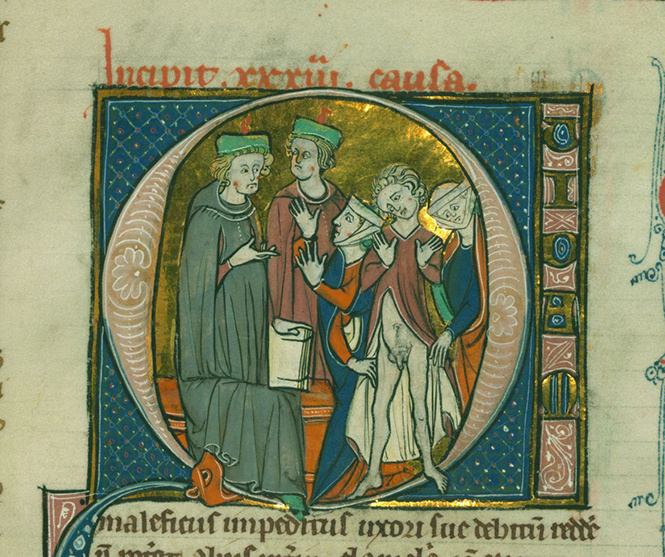 Incipit .xxxiii. causa.
QUIDAM
maleficus impeditus uxori sue debitū redde